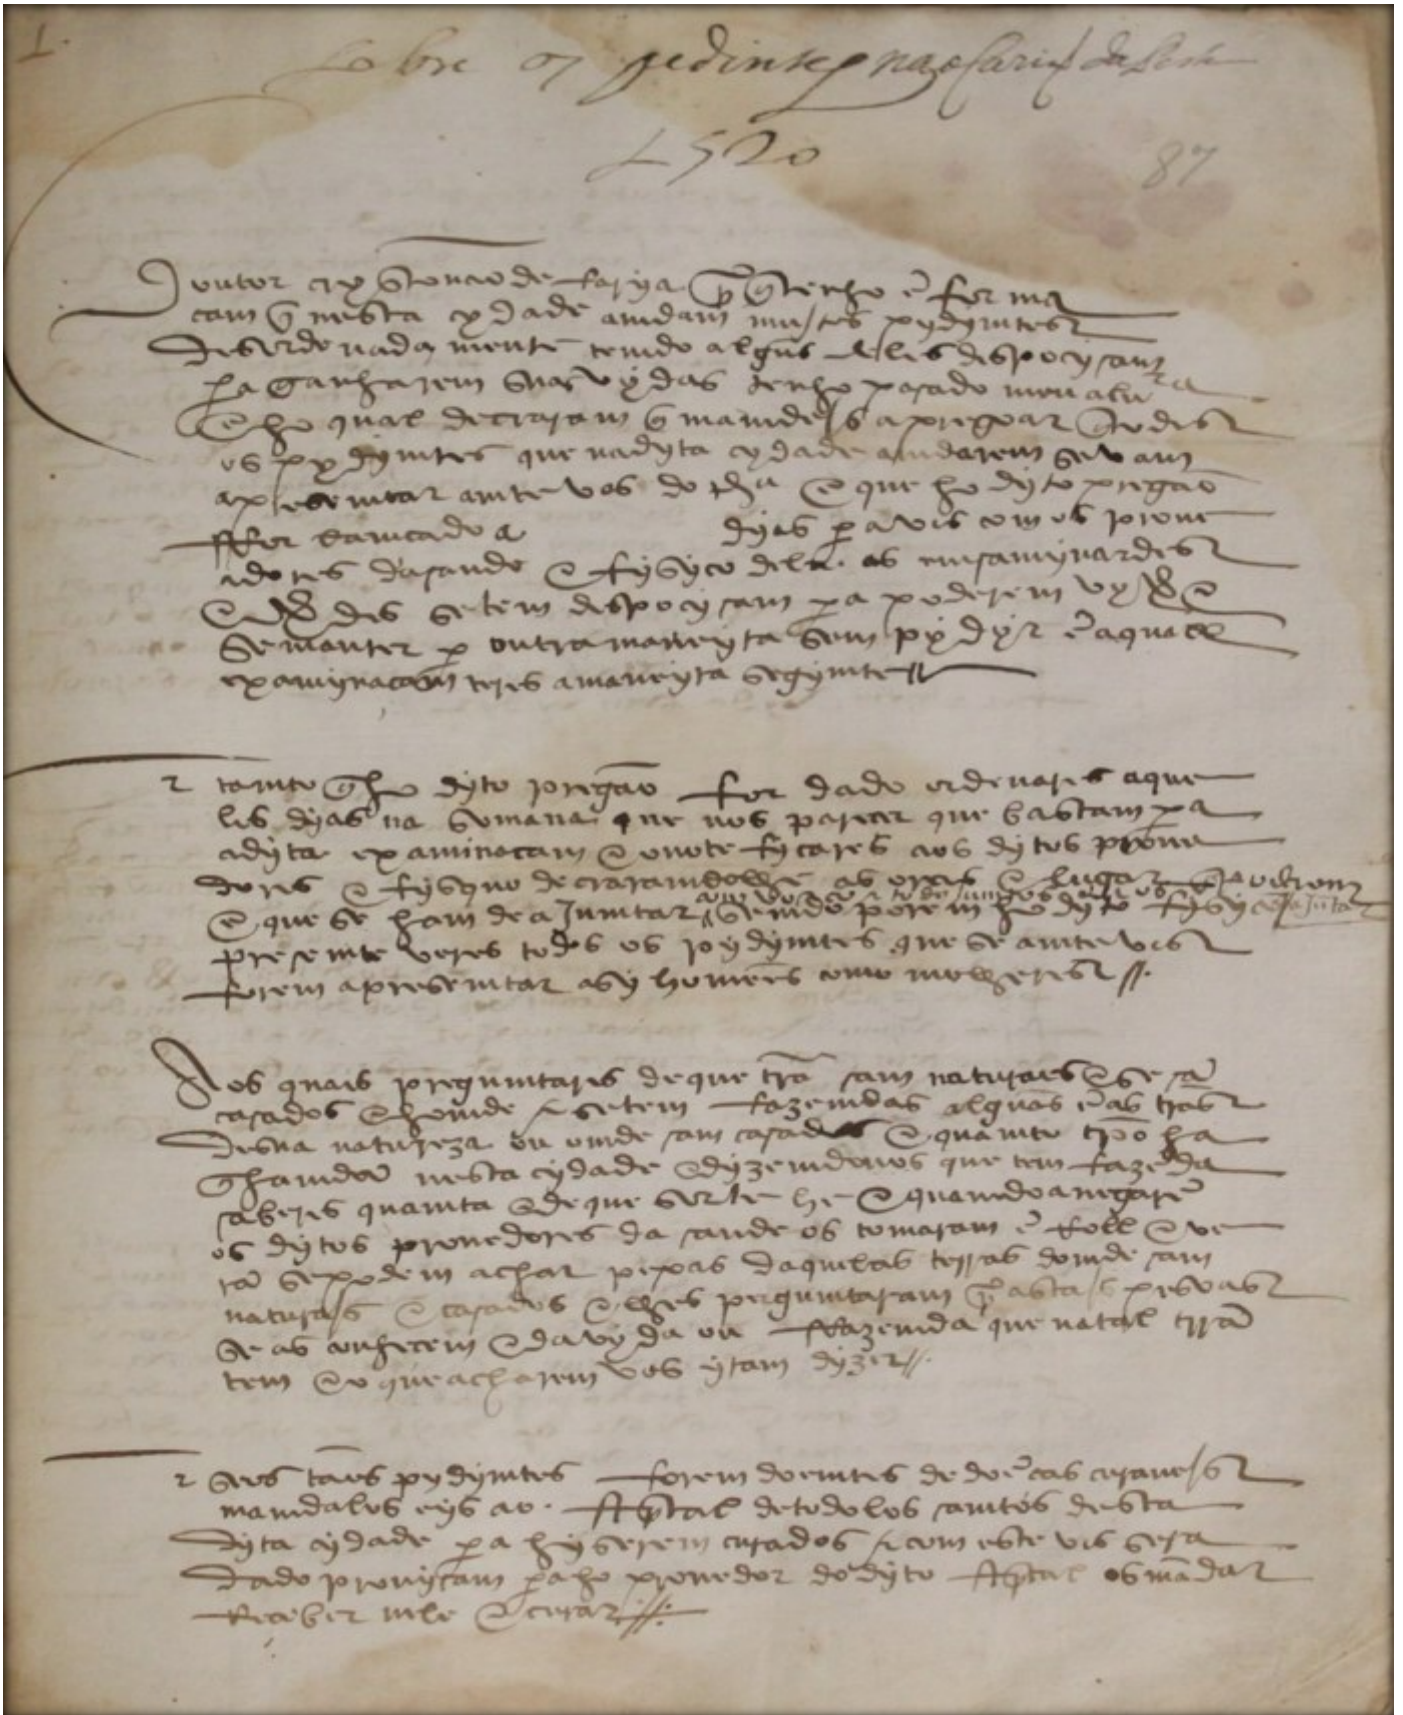 1.
Sobre os pedintes na
1520
87
Doutor de farya tenho ẽ forma
cam q̃ nesta cydade amdam muytos pydymtes
desordenadamente temdo algũs deles despocysam
pa ganharem suas vydas tenho pasado meu alura
e ho qual decraram q̃ mamdeis apregoar q̃ todos
os pydymtes que na dyta cydade amdarem se vam
apresemtar amte vos do dya e que ho dyto pregão
for lamcado a dyas pa vos com os prove
adores da saude e fysyco dela os emsamynardes
e verdes se tem despocysam pa poderem vyver e
se manter p outra maneyra sem pydyr e aquela
examynacam teres a maneyra segymte
tamto q̃ ho dyto pregão for dado ordenares aque
les dyas na somana que vos parecer que bastam pa
a dyta examinacam e o notefycares aos dytos prove
dores e fysyquo decraramdolhe as oras e lugar
e que se ham de ajumtar semdo porem ho dyto fysyco
presemte veres todos os pydymtes que se amte vos
forem apresemtar asy homẽs como molheres
Aos quais pregumtares de que trã sam naturaes e se sã
casados e homde e se tem fazemdas algũas ẽ as trãs
de sua natureza ou omde sam casados e quamto tpõ ha
q̃ hamdã nesta cydade e dyzemdovos que tem fazẽda
saberes quamta e de que sorte he e quamdo a negarẽ
os dytos provedores da saude os tomaram ẽ Roll e ve
rã se podem achar pesoas daquelas terras domde sam
naturais e casados e lhes pergumtaram p̃ estas pesoas
se as conhecem e da vyda ou fazemda que na tal trrã
tem e o que acharem vos yram dyzer
Se os tães pydymtes forem doemtes de doẽcas curaveis
mamdalos eys ao espytal de todolos samtos desta
dyta cydade pa hy serem curados e com este vos sera
dado provycam pa ho provedor do dyto espytal os mãdar
Receber nele e curar